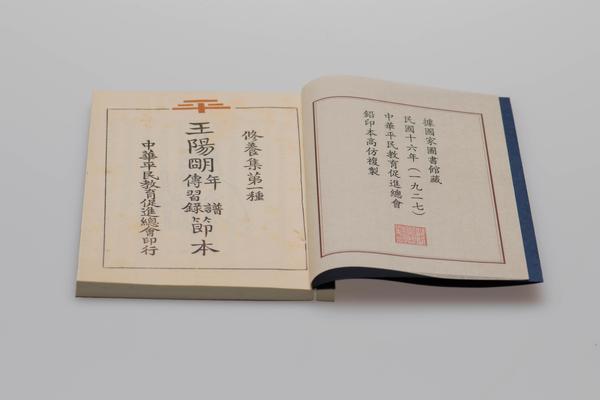 據國家圖書館藏
民國十六年（一九二七）
中華平民教育促進總會
鉛印本高仿複製
平
修養集第一種
王陽明年譜傳習錄節本
中華平民教育促進總會印行